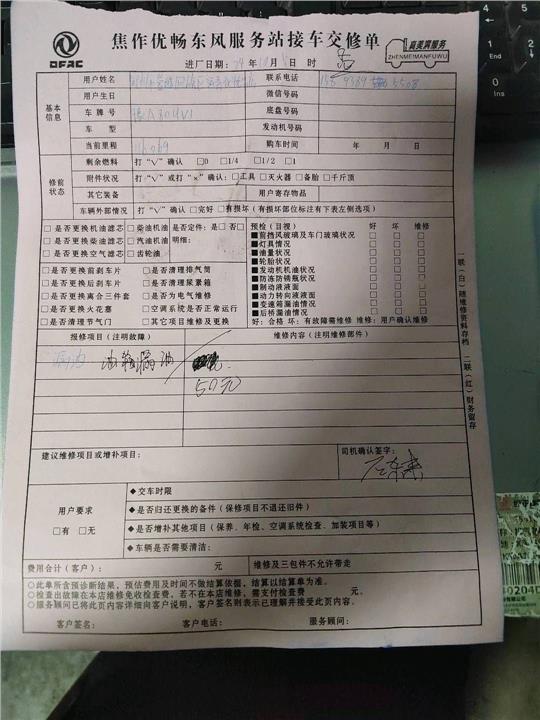 DFAC
焦作优畅东风服务站接车交修单
真美满服务
ZHENMEIMANFUWU
进厂日期：24年 月 日 时
基本信息
用户姓名
联系电话
用户生日
微信号码
车牌号
底盘号码
车型
发动机号码
当前里程
购车时间 年 月 日
修前状态
剩余燃料 打“√”确认 □0 □1/4 □1/2 □1
附件状况 打“√”或打“×”确认：□工具 □灭火器 □备胎 □千斤顶
其它装备 用户寄存物品
车辆外部情况 打“√”确认 □完好 □有损坏（有损坏部位标注有下表左侧选项）
□是否更换机油滤芯 □柴油机油 是否定件：是 □否□
□是否更换柴油滤芯 □汽油机油 明细：
□是否更换空气滤芯 □齿轮油
□是否更换前刹车片 □是否清理排气筒
□是否更换后刹车片 □是否清理尿素箱
□是否更换离合三件套 □是否为电气维修
□是否更换火花塞 □空调系统是否正常运行
□是否清理节气门 □其它项目维修及更换
预检（目视） 好 坏 维修
■前挡风玻璃及车门玻璃状况 □ □ □
■灯具情况 □ □ □
■油量状况 □ □ □
■轮胎状况 □ □ □
■发动机机油状况 □ □ □
■防冻防锈瓶状况 □ □ □
■制动液液面 □ □ □
■动力转向液液面 □ □ □
■变速箱漏油情况 □ □ □
■后桥漏油情况 □ □ □
好：合格 坏：有故障需维修 维修：用户确认维修
报修项目（注明故障） 维修内容（注明维修部件）
漏油
50元
建议维修项目或增补项目：
司机确认签字：
用户要求
□有 □无
◆交车时限
◆是否归还更换的备件（保修项目不退还旧件）
◆是否增补其他项目（保养、年检、空调系统检查、加装项目等）
◆车辆是否需要清洁：
费用合计（客户）： 元 维修及三包件不允许带走
○此单所含预诊断结果，预估费用及时间不做结算依据，结算以结算单为准。
●检查出故障在本店维修免收检查费，若不在本店维修，需支付检查费 元。
●服务顾问已将此页内容详细向客户说明，客户签名则表示已理解并接受此页内容。
客户签名： 客户电话： 服务顾问：
一联（白）随维修资料存档 二联（红）财务留存